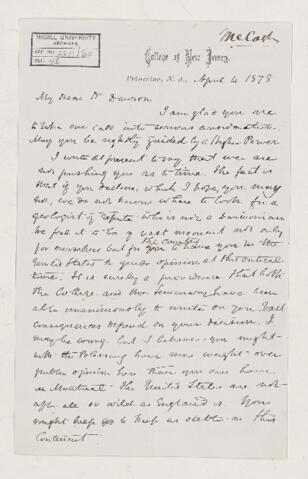 McGILL UNIVERSITY
ARCHIVES
ACC. NO.
REF.
McCosh
College of New Jersey.
Princeton, N. J., April 4 1878
My dear Dr Dawson.
I am glad you are
to take our call into serious consideration.
May you be rightly guided by a Higher Power.
I write at present to say that we are
not pushing you as to time. The fact is
that if you decline, which I hope you may
not, we do not know where to look for a
geologist of repute who is not a Darwinian
We feel it to be of vast moment not only
for ourselves but for the country to have you in the
United States to guide opinion at this critical
time. It is surely a providence that both
the College and the Seminary have been
able unanimously to unite on you. Vast
consequences depend on your decision. I
may be wrong but I believe you might
with the Blessing have more weight over
public opinion here than you can have
in Montreal. The United States are not
after all so wild as England is. You
might help to keep us stable on this
Continent